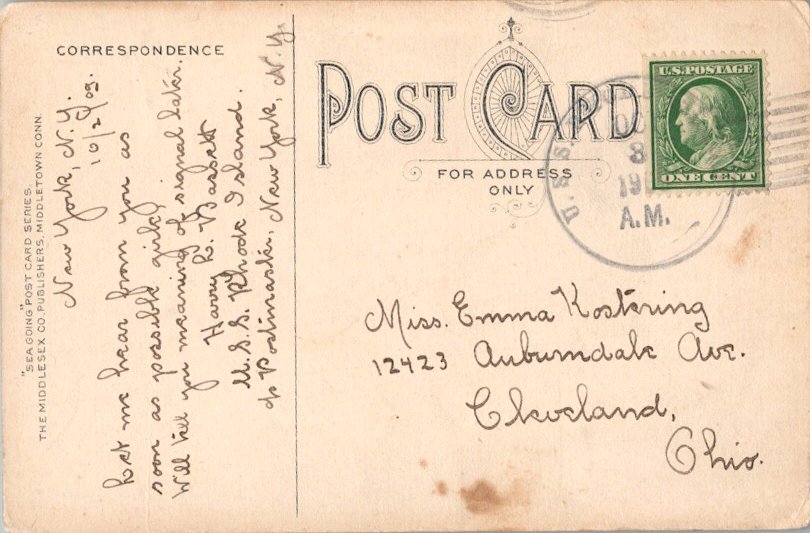 CORRESPONDENCE
New York, N.Y.
10/2/09.
Let me hear from you as
soon as possible girlie,
Will tell you meaning of signal later.
Harry L. Bassett
U.S.S. Rhode Island.
c/o Postmaster, New York, N.Y.
"SEA GOING" POST CARD SERIES.
THE MIDDLESEX CO. PUBLISHERS, MIDDLETOWN CONN.
POST CARD
FOR ADDRESS
ONLY
U.S. POSTAGE
ONE CENT
U.S.S.
8
A.M.
Miss. Emma Kostering
12423 Auburndale Ave.
Cleveland,
Ohio.